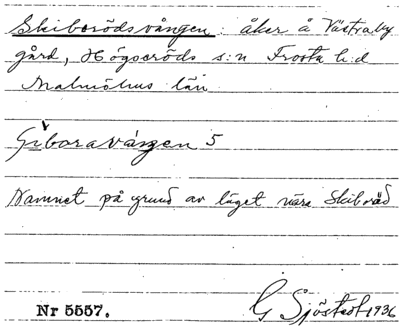 Skiborödsvången: åker å Västraby
gård, Högseröds s:n Frosta h:d
Malmöhus län
Namnet på grund av läget nära Skiböröd
Nr 5557.
G Sjöstedt 1936